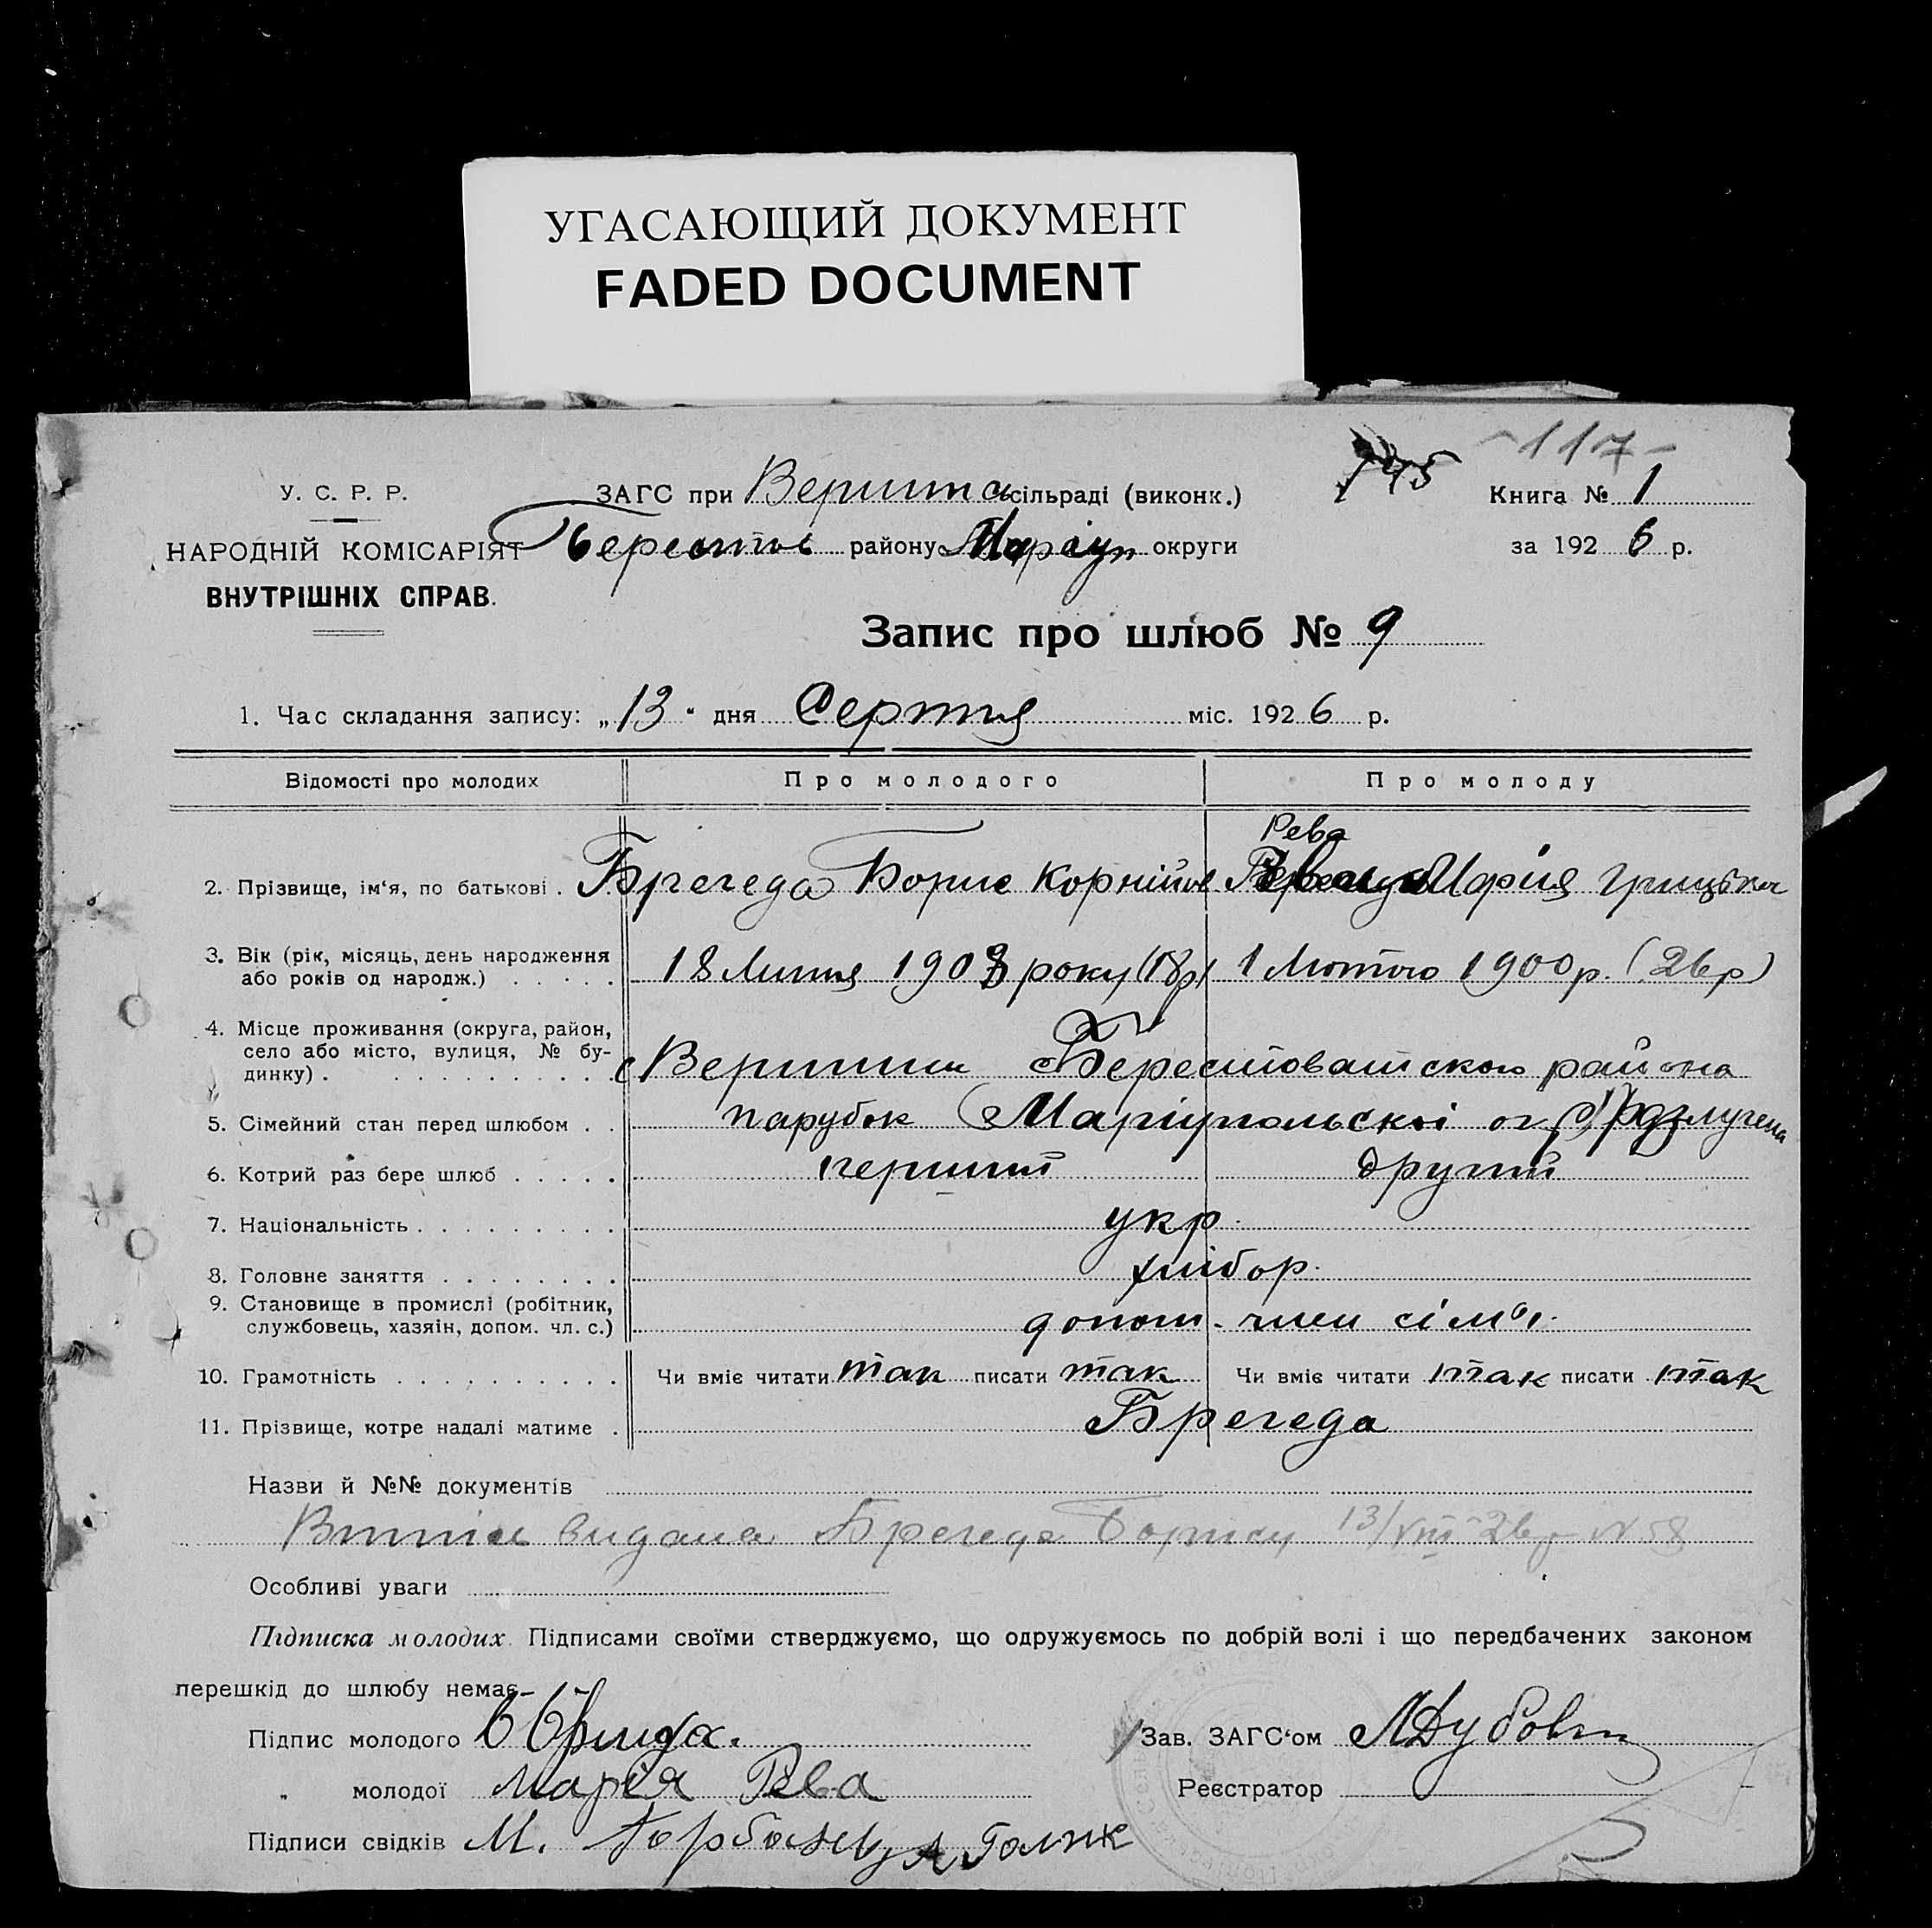 УГАСАЮЩИЙ ДОКУМЕНТ
FADED DOCUMENT
-117-
145
У. С. Р. Р.
НАРОДНІЙ КОМІСАРІЯТ
ВНУТРІШНІХ СПРАВ.
ЗАГС при Вершина сільраді (виконк.)
Берестов району Маріуп округи
Книга № 1
за 192 6 р.
Запис про шлюб № 9
1. Час складання запису: „ 13 " дня Серпня міс. 192 6 р.
Відомості про молодих Про молодого Про молоду
Рева
2. Прізвище, ім'я, по батькові . Брегеда Борис Корнійов Марія Грицьков
3. Вік (рік, місяць, день народження
або років од народж.) . . . . . 18 Липня 1908 року (18р) 1 Лютого 1900 р. (26 р)
4. Місце проживання (округа, район,
село або місто, вулиця, № бу-
динку) . . . . . . . . . . . с Вершини Берестоватского района
5. Сімейний стан перед шлюбом . . парубок (Маріупольскоі окр) розлучена
6. Котрий раз бере шлюб . . . . . перший другий
7. Національність . . . . . . . . . укр.
8. Головне заняття . . . . . . . . хлібор.
9. Становище в промислі (робітник,
службовець, хазяін, допом. чл. с.) допом. член сім'ї.
10. Грамотність . . . . . . . . . . Чи вміє читати так писати так Чи вміє читати так писати так
11. Прізвище, котре надалі матиме . Брегеда
Назви й №№ документів
видана Брегеда Борису 13/VIII-26р N 58
Особливі уваги
Підписка молодих. Підписами своїми стверджуємо, що одружуємось по добрій волі і що передбачених законом
перешкід до шлюбу немає
Підпис молодого
Зав. ЗАГС'ом
„ молодої Марія Рева
Реєстратор
Підписи свідків М. Горбань, А Голик